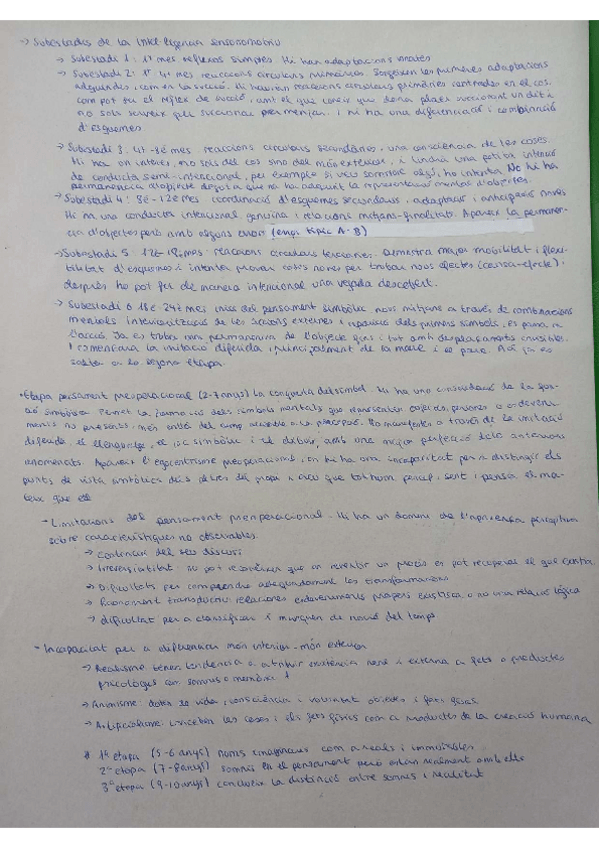 → Subestadis de la intel·ligència sensoriomotriu
→ Subestadi 1: 1r mes reflexos simples. Hi han adaptacions innates
→ Subestadi 2: 1r 4t mes reaccions circulars primàries. Sorgeixen les primeres adaptacions
adquirides, com en la succió. Hi hauran reaccions circulars primàries centrades en el cos.
com pot ser el reflex de succió, amb el que coneix que dona plaer succionant un dit i
no sols serveix per succionar per menjar. i hi ha una diferenciació i combinació
d'esquemes
→ Subestadi 3: 4t-8è mes reaccions circulars secundàries, una consciència de les coses.
Hi ha un interès no sols del cos sino del món exterior, i tindrà una petita intenció
de conducta semi-intencional, per exemple si veu somriure algú, ho intenta. No hi ha
permanencia d'objecte degut a que no ha adquirit la representació mental d'objectes.
→ Subestadi 4: 8è-12è mes coordinació d'esquemes secundaris, adaptació i anticipació
Hi ha una conducta intencional, genuina i relacions mitjans-finalitats. Apareix la permanen-
cia d'objectes però amb alguns errors (error típic A-B)
→ Subestadi 5: 12è-18è mes: reaccions circulars terciàries. Demostra major mobilitat i flexi-
bilitat d'esquemes i intenta provar coses noves per trobar nous efectes (causa-efecte).
després ho pot fer de manera intencional una vegada descobert.
→ Subestadi 6 18è-24è mes inici del pensament simbòlic nous mitjans a través de combinacions
mentals interiorització de les accions externes i aparició dels primers símbols, es para a
l'acció. Ja es troba una permanencia de l'objecte fins i tot amb desplaçaments invisibles.
I començarà la imitació diferida, principalment de la mare i el pare. Ací ja es
salta a la segona etapa.
• Etapa pensament preoperacional (2-7 anys) la conquesta del símbol. Hi ha una consolidació de la fun-
ció simbòlica. Permet la formació dels símbols mentals que representen objectes, persones o esdeveni-
ments no presents, més enllà del camp. Es manifesta a través de la imitació
diferida, el llenguatge, el joc simbòlic i el dibuix, amb una major perfecció dels anteriors
anomenats. Apareix l'egocentrisme preoperacional, on hi ha una incapacitat per a distingir els
punts de vista dels altres del propi i creu que tothom percep, sent i pensa el ma-
teix que ell
• Limitacions del pensament preoperacional. Hi ha un domini de l'aparença perceptiva
sobre característiques no observables.
→ del seu discurs
→ Irreversibilitat: no pot reconèixer que en revertir un procés es pot recuperar el que
→ Dificultats per comprendre adequadament les transformacions
→ Raonament transductiu: relacions esdeveniments propers existisca o no una relació lògica
→ dificultat per a classificar i nocio del temps
• Incapacitat per a diferenciar món interior - món exterior
→ Realisme: tenen tendència a atribuir existència real i externa a fets o productes
psicològics com somnis o memòria
→ Animisme: doten de vida, consciència i voluntat objectes i fets físics
→ Artificialisme: conceben les coses i els fets físics com a productes de la creació humana
1ª etapa (5-6 anys) noms com a reals i immòbils
2ª etapa (7-8 anys) somnis en el pensament però estan realment amb ells
3ª etapa (9-10 anys) condueix la distinció entre somnis i realitat